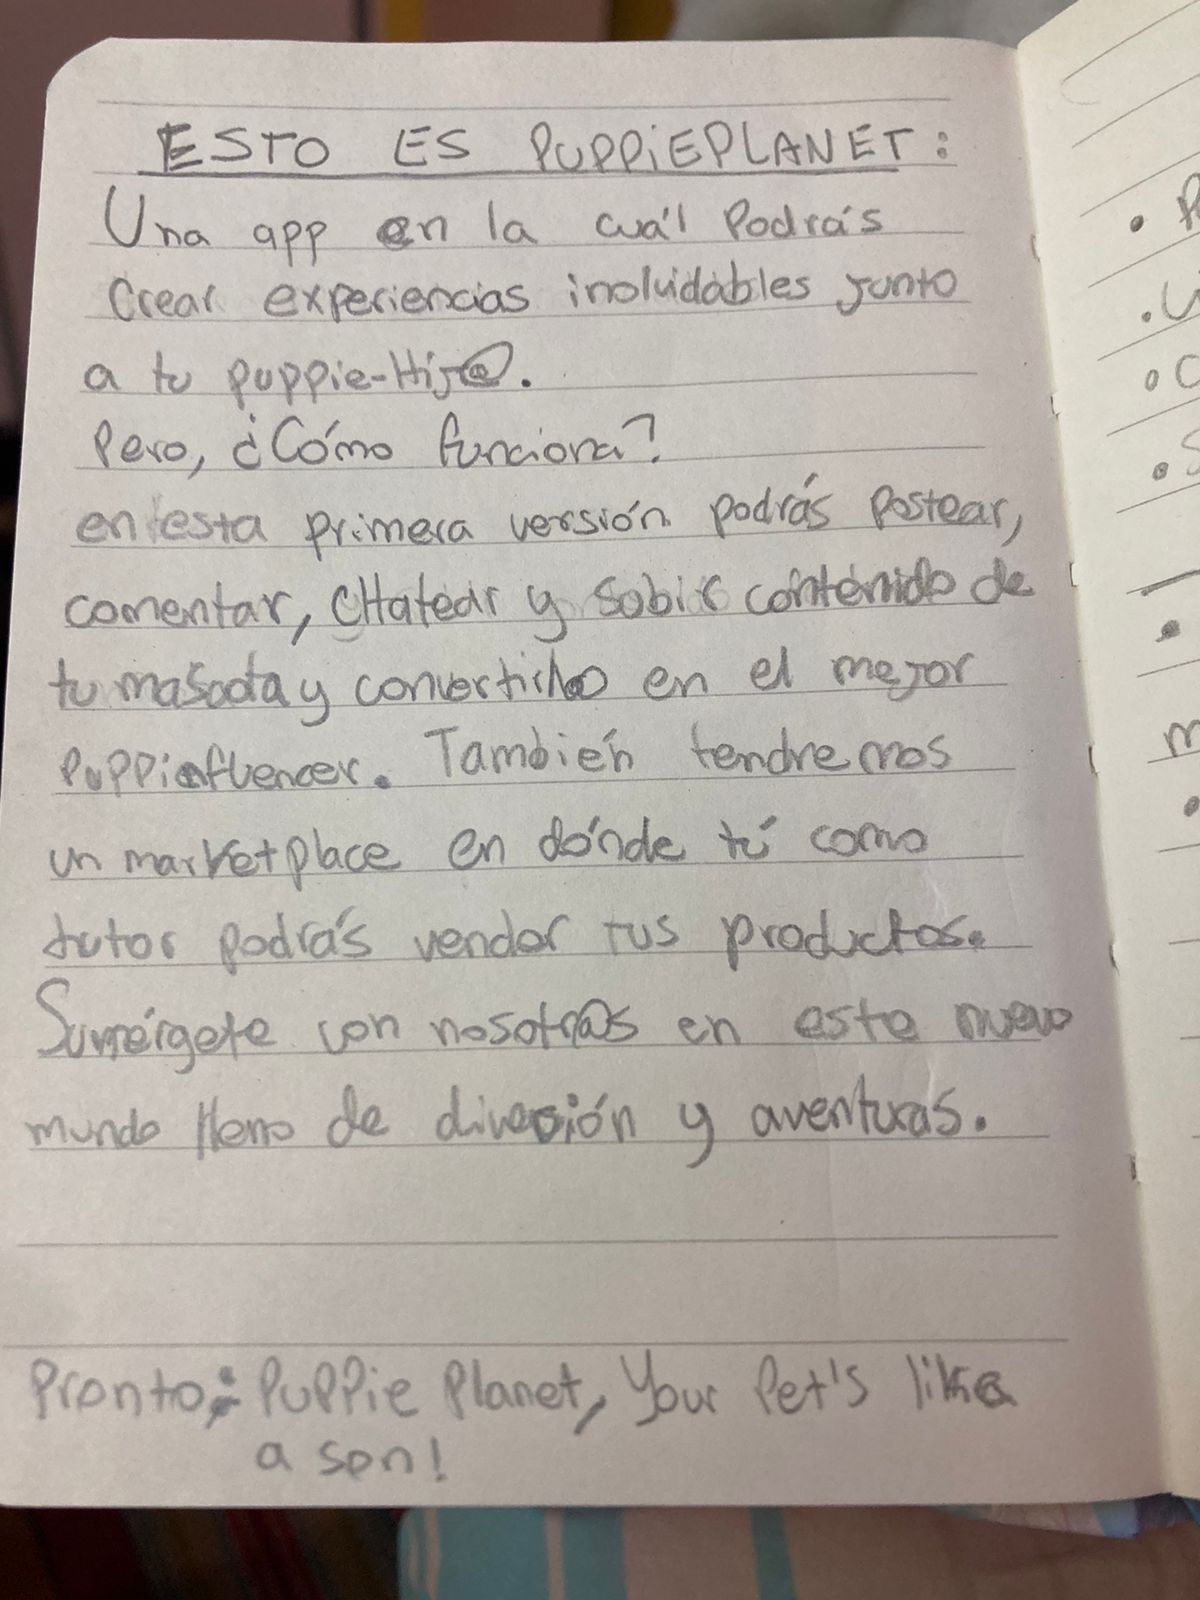 ESTO ES PUPPiEPLANET:
Una app en la cuál Podrás
Crear experiencias inoluidables junto
a tu puppie-Hij@.
Pero, ¿Cómo funciona?
en esta primera versión podrás Postear,
comentar, cHatear y subir contenido de
tu mascota y convertirl@ en el mejor
Puppinfluencer. También tendremos
un marketplace en dónde tú como
tutor podrás vender tus productos.
Sumérgete con nosotr@s en este nuevo
mundo lleno de diversión y aventuras.
Pronto: PuPPie Planet, Your Pet's like
a son!